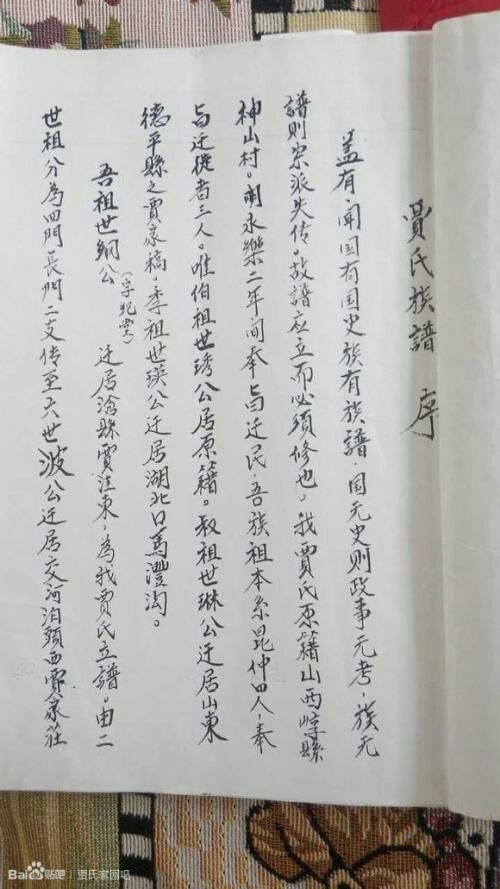 賈氏族譜 序
盖有,闻国有国史族有族譜,国无史则政事无考,族无
譜则宗派失传。故譜应立而必须修也。我賈氏原籍山西崞縣
神山村。明永樂二年间奉旨迁民,吾族祖本系昆仲四人,奉
旨迁徙者三人。唯伯祖世琇公居原籍。叔祖世琳公迁居山東
德平縣之賈家稿。季祖世瑛公迁居湖北口馬澧沟。
吾祖世綱公(字纪堂)迁居滄縣賈洼東,為我賈氏立譜。由二
世祖分為四門長門二支传至六世波公迁居交河泊頭西賈家莊
Bai 贴吧 | 贾氏家网吧